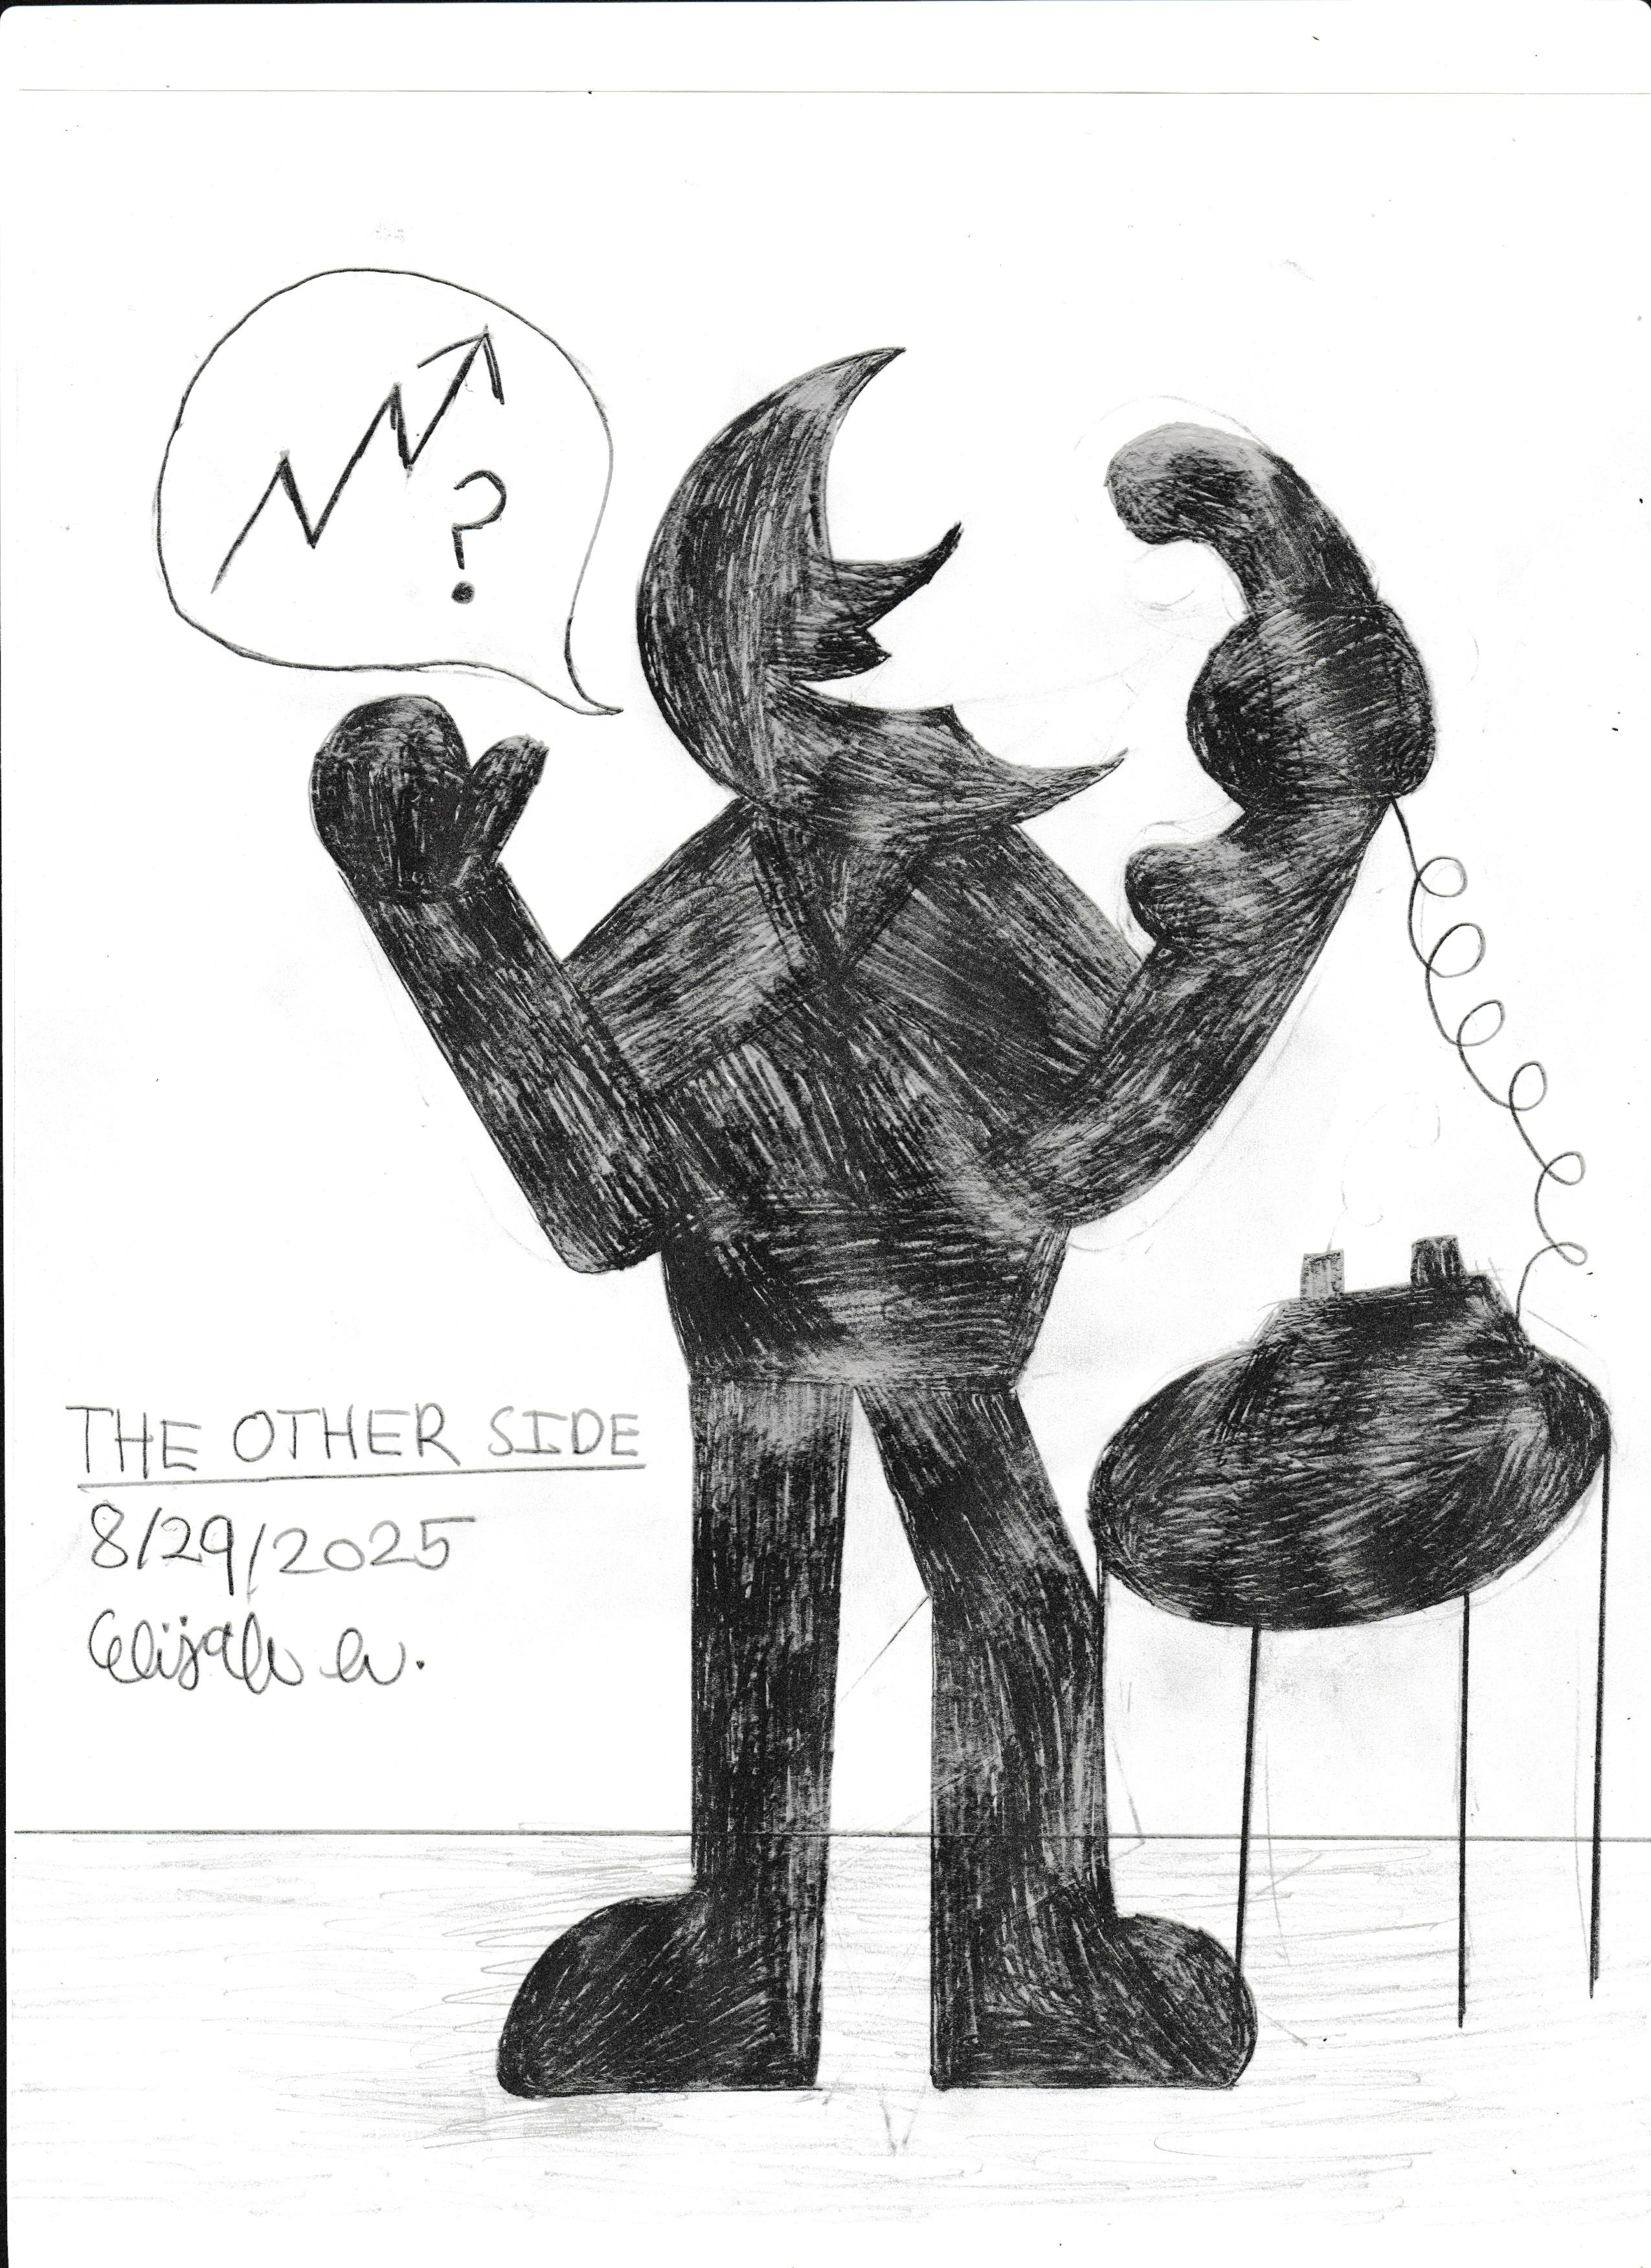 ?
THE OTHER SIDE
8/29/2025
Elijah